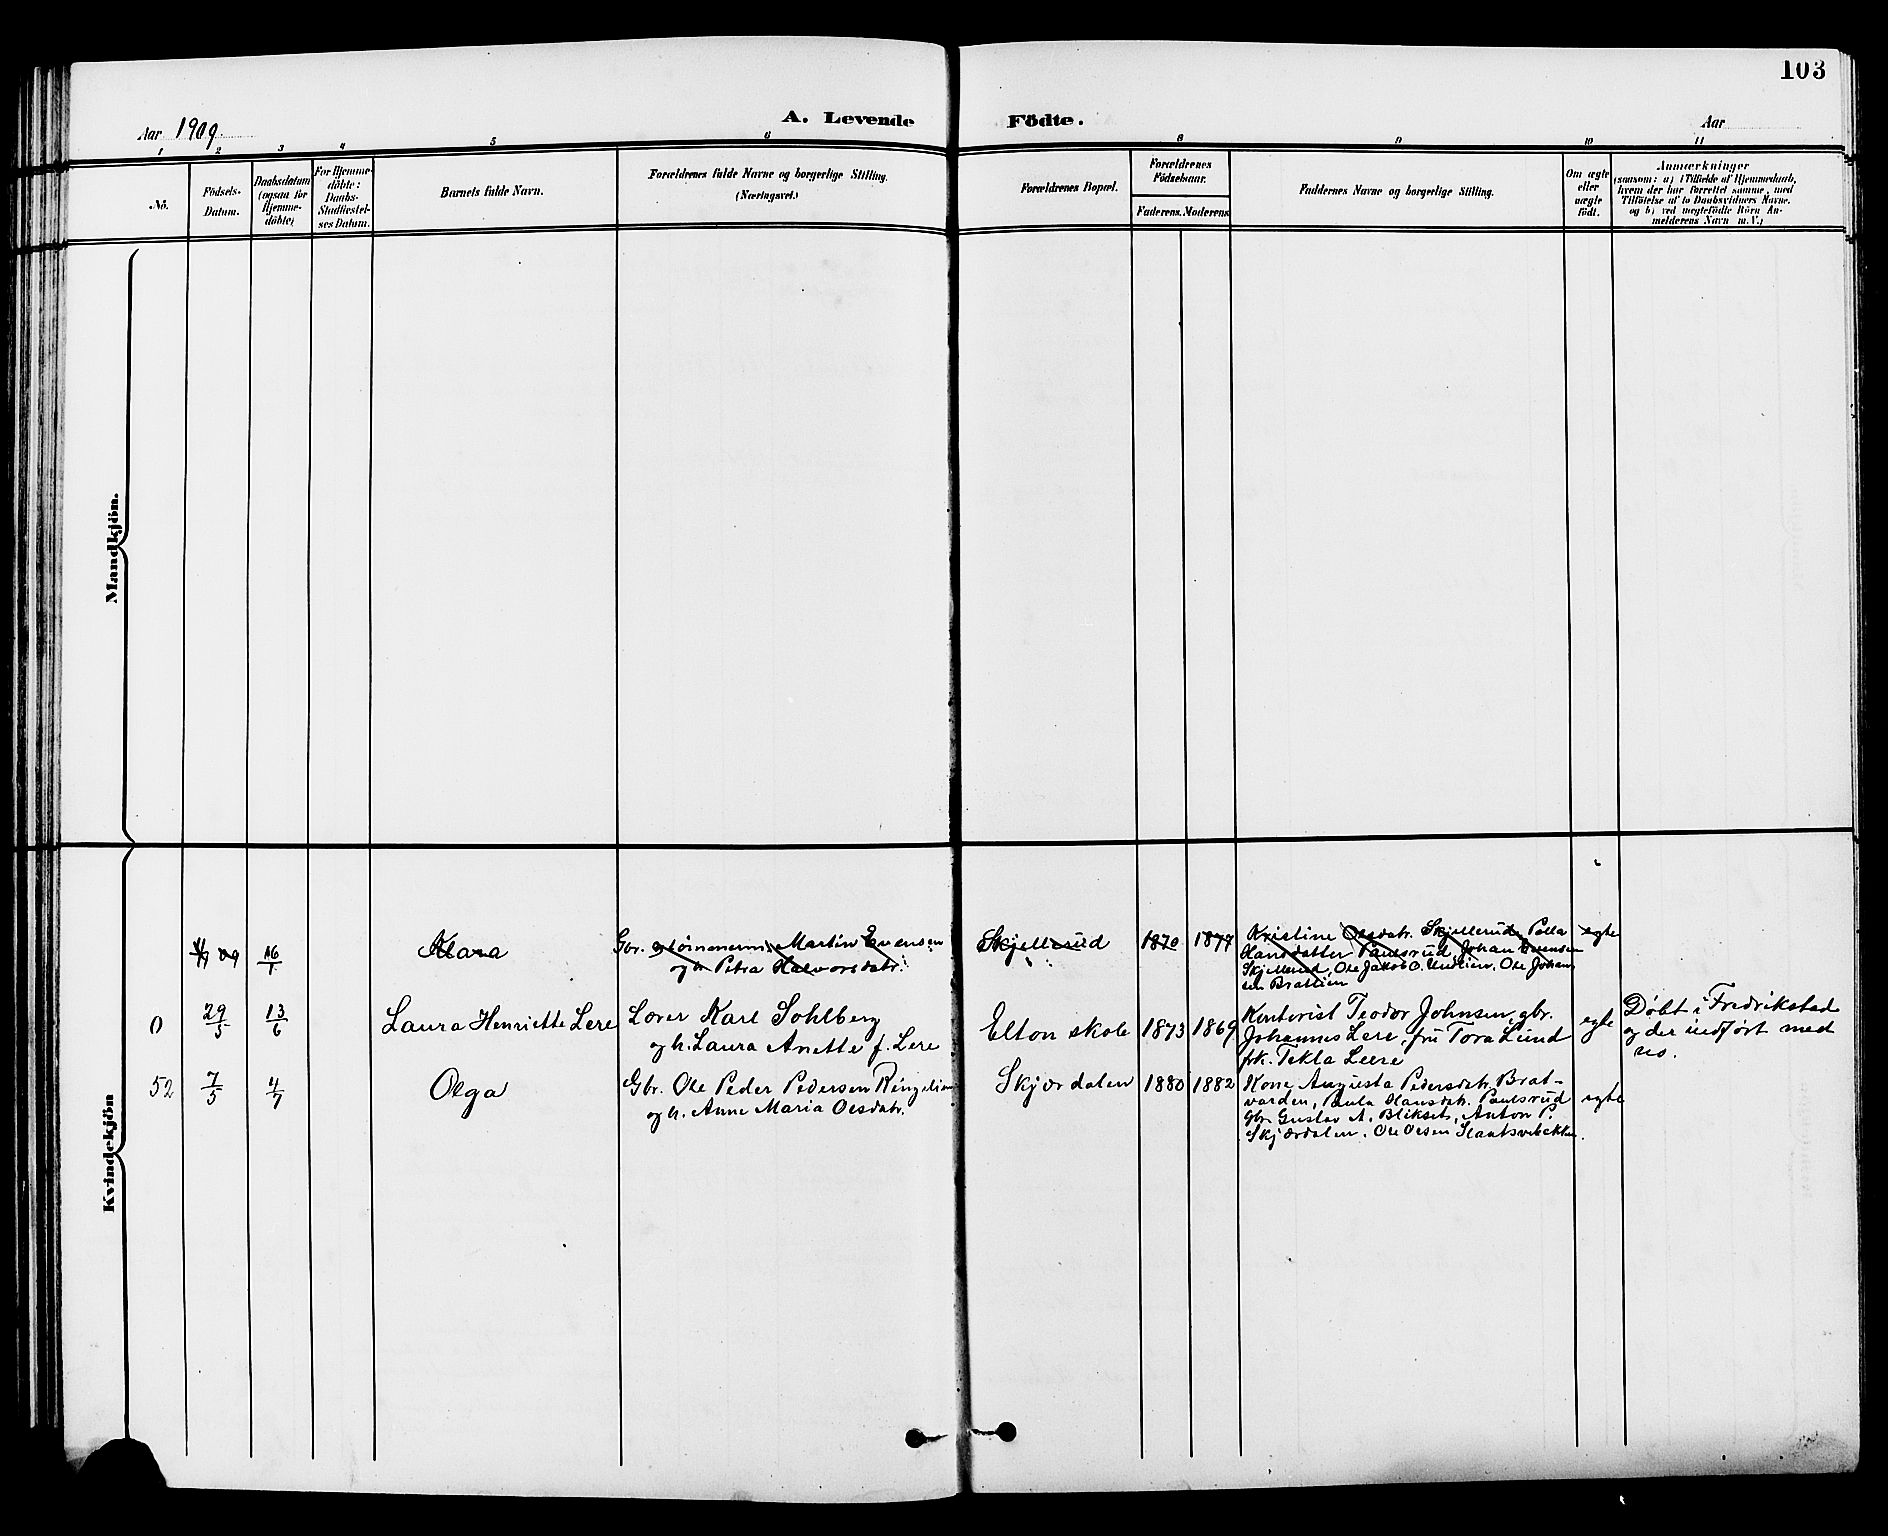 103
Aar 1909. A. Levende Födte. Aar
1 2 3 4 5 6 8 9 10 11
No.
Födsels-
Datum.
Daabsdatum
(ogsaa for
Hjemme-
döbte)
For Hjemme-
döbte:
Daabs-
Stadfæstel-
ses Datum.
Barnets fulde Navn.
Forældrenes fulde Navne og borgerlige Stilling.
(Næringsvei.)
Forældrenes Bopæl.
Forældrenes
Födselsaar.
Faderens. Moderens
Faddernes Navne og borgerlige Stilling.
Om ægte
eller
uægte
født.
Anmærkninger
(saasom: a) i Tilfælde af Hjemmedaab,
hvem der har forrettet samme, med
Tilföielse af to Daabsvidners Navne.
og b) ved uægtefödte Börn An-
melderens Navn m. V.)
Mandkjön.
Kvindekjön
09 16/1 Klara
Gbr. Martin Evensen
og h. Petra Halvorsdatr.
Skjellerud 1870 1877
Kristine Olsdatr. Skjellerud, Palla
Hansdatter Paulsrud, Johan Evensen
Skjellerud, Ole Jakob O. Ole Johan-
sen Bratlien
egte
0 29/5 13/6 Laura Henriette Lere
Lærer Karl Sohlberg
og h. Laura Anette f. Lere
Elton skole 1873 1869
Kontorist Teodor Johnsen, gbr.
Johannes Lere, fru Tora Lund
frk. Tekla Leere
egte
Döbt i Fredrikstad
og der indført med
no.
52 7/5 4/7 Olga
Gbr. Ole Peder Pedersen
og h. Anne Maria Olsdatr.
Skjærdalen 1880 1882
Kone Augusta Pedersdatr. Brat-
varden, Paula Hansdatr. Paulsrud
Gbr. Gustav A. Blikset, Anton P.
Skjærdalen. Ole Olsen
egte